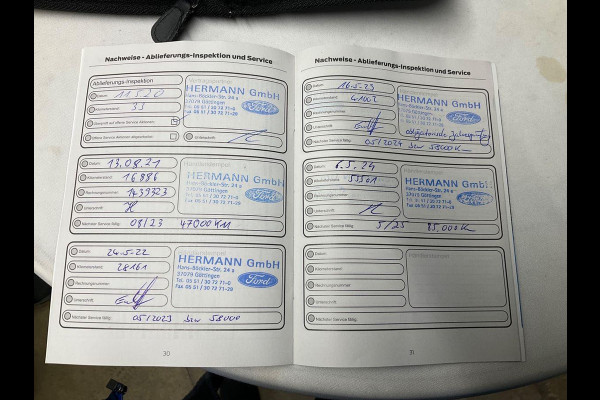 Nachweise - Ablieferungs-Inspektion und Service
Ablieferungs-Inspektion
Datum 11.5.20
Kilometerstand 33
Unterschrift
HERMANN GmbH
Hans-Böckler-Str. 24 a
37079 Göttingen
Tel. 05 51 / 30 72 71-0
Fax 05 51 / 30 72 71-29
Ford
Datum 13.08.21
Kilometerstand 16886
Rechnungsnummer 1439323
Unterschrift
Nächster Service fällig: 08/23 47000 KM
HERMANN GmbH
Hans-Böckler-Str. 24 a
37079 Göttingen
Tel. 05 51 / 30 72 71-0
Fax 05 51 / 30 72 71-29
Ford
Datum 24.5.22
Kilometerstand 28161
Rechnungsnummer
Unterschrift
Nächster Service fällig: 05/2023 58000
HERMANN GmbH
Hans-Böckler-Str. 24 a
37079 Göttingen
Tel. 05 51 / 30 72 71-0
Fax 05 51 / 30 72 71-29
Ford
30
Nachweise - Ablieferungs-Inspektion und Service
Datum 16.5.23
Kilometerstand 41102
Rechnungsnummer
Unterschrift
Nächster Service fällig: 05/2024 58000
HERMANN GmbH
Hans-Böckler-Str. 24 a
37079 Göttingen
Tel. 05 51 / 30 72 71-0
Fax 05 51 / 30 72 71-29
Ford
Datum 6.5.24
Kilometerstand
Rechnungsnummer
Unterschrift
Nächster Service fällig: 5/25 85.000
HERMANN GmbH
Hans-Böckler-Str. 24 a
37079 Göttingen
Tel. 05 51 / 30 72 71-0
Fax 05 51 / 30 72 71-29
Ford
Datum
Kilometerstand
Rechnungsnummer
Unterschrift
Nächster Service fällig:
31